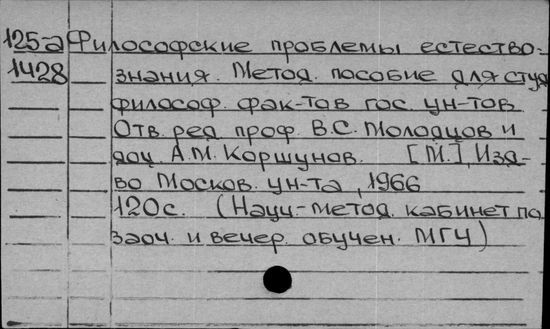 125-а Философские проблемы естество-
1428 знания. Метод. пособие для студ
философ. фак-тов гос. ун-тов.
Отв. ред. проф. В.С. Молодцов и
доц. А.М. Коршунов. [М.], Изд-
во Москов. ун-та, 1966
120с. (Науч.-метод. кабинет по
заоч. и вечер. обучен. МГУ)